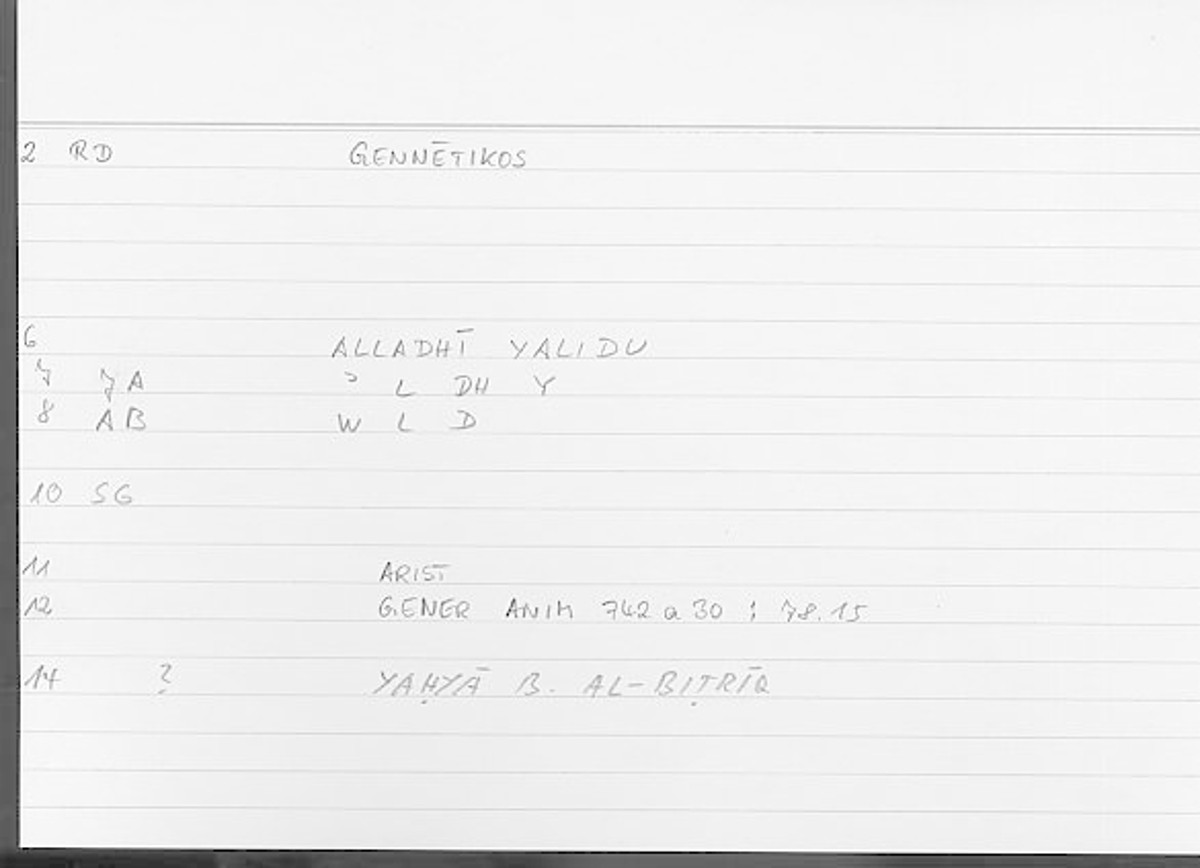 2 RD GENNĒTIKOS
6 ALLADHĪ YALIDU
7 7A ʾ L DH Y
8 AB W L D
10 SG
11 ARIST
12 GENER ANIM 742 a 30 ; 78.15
14 ? YAḤYĀ B. AL-BIṬRĪQ